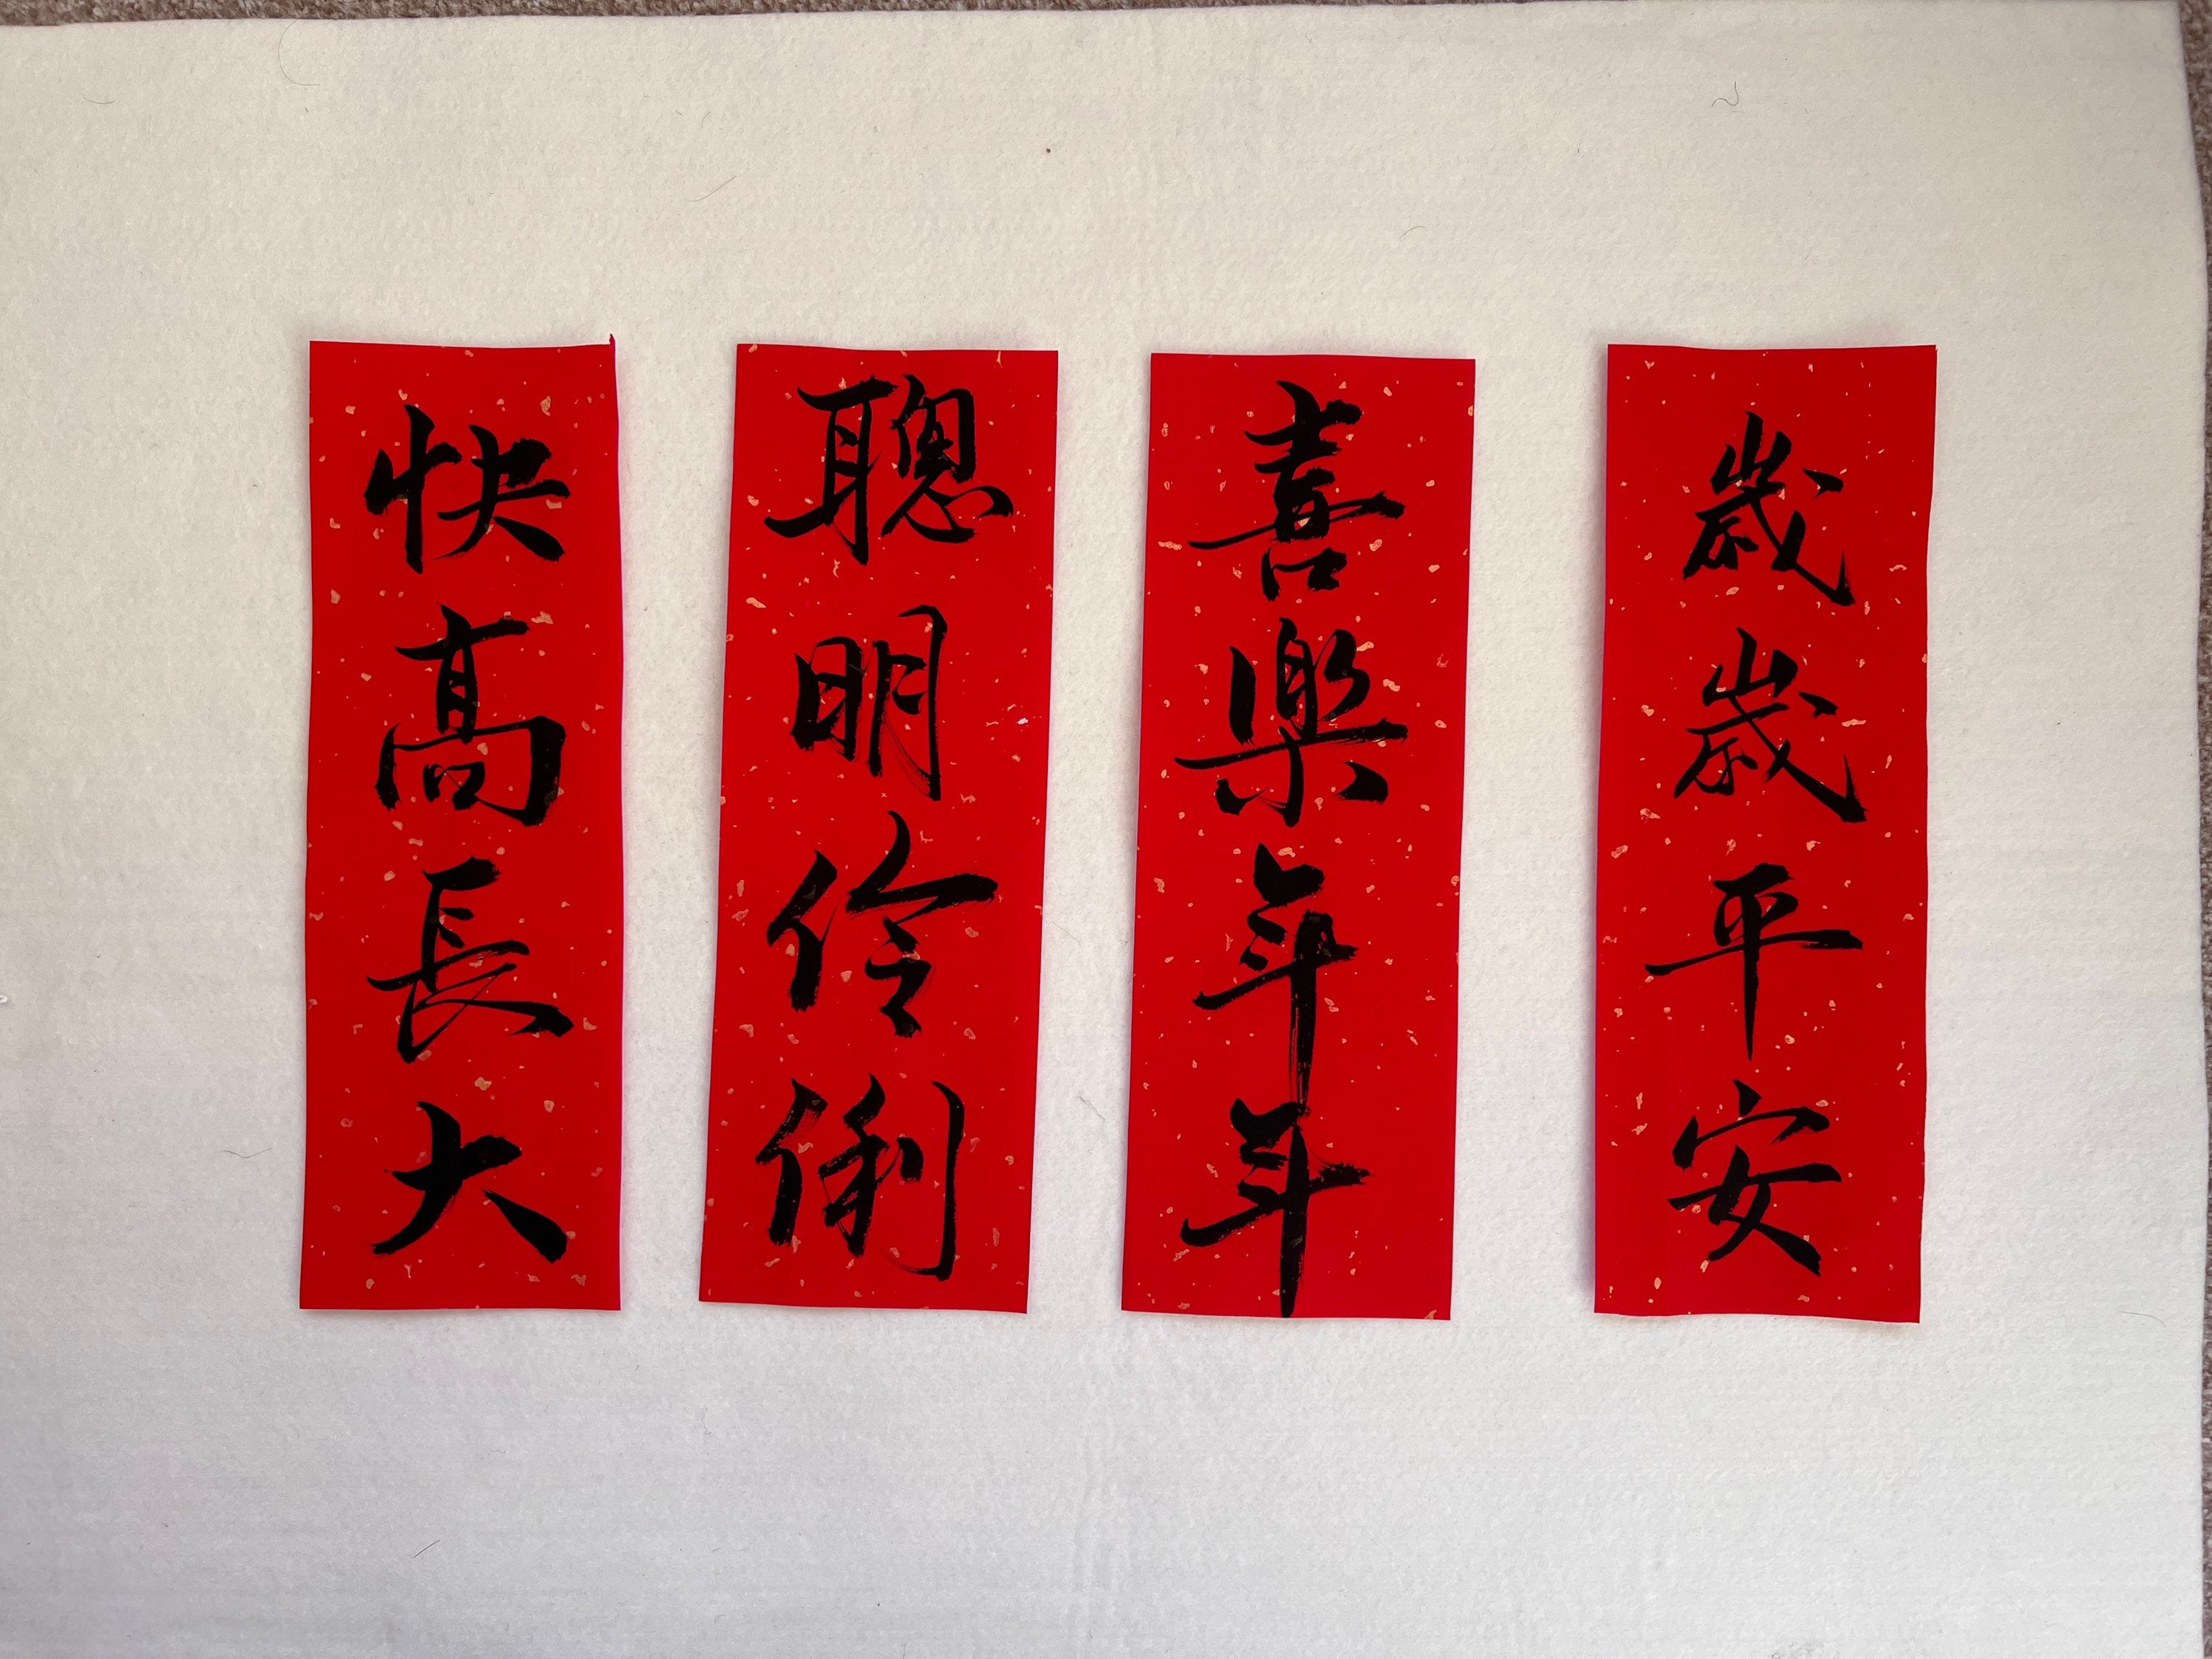 歲歲平安
喜樂年年
聰明伶俐
快高長大